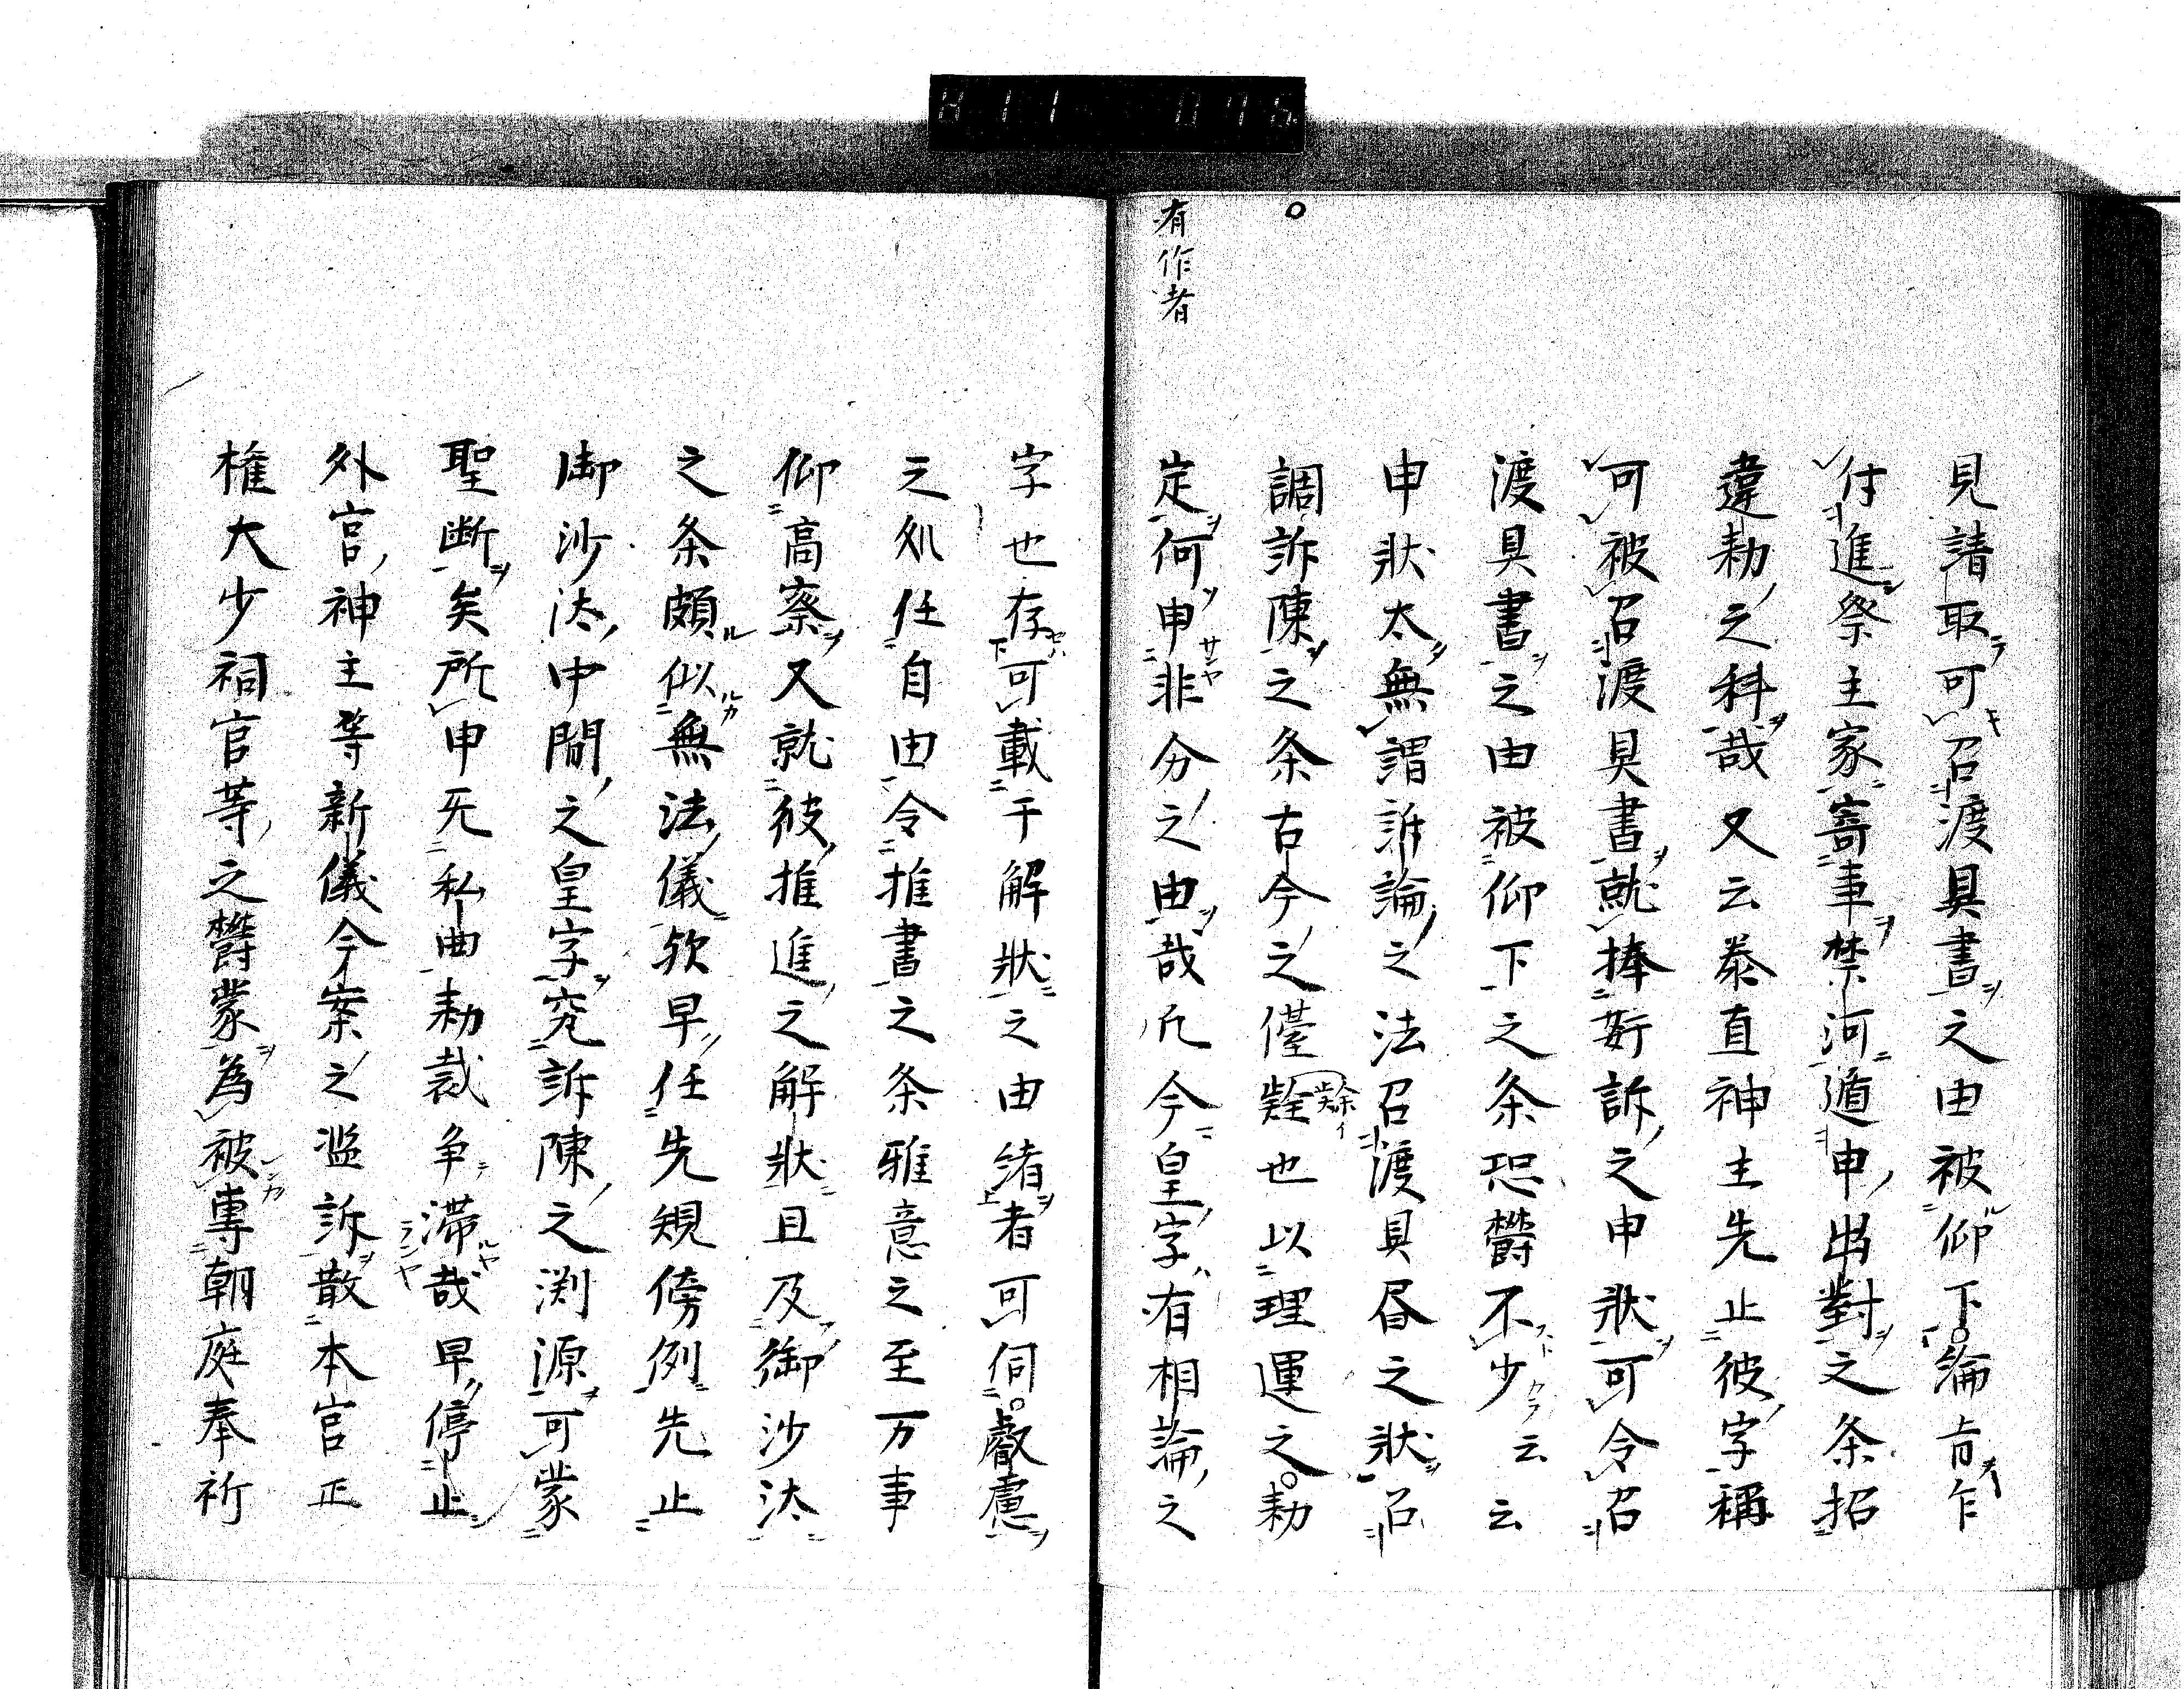 見請取可召渡具書之由被仰下論旨乍
付進祭主家寄事禁河遁申出對之条招
違勅之科哉又云泰直神主先止彼字称
可被召渡具書就捧奸訴之申狀可令召
渡具書之由被仰下之条恐欝不少云云
申狀太無謂訴論之法召渡具書之狀召
調訴陳之条古今之也以理運之勅
定何申非分之由哉凡今皇字有相論之
有作者
字也存可載于解狀之由緒者可伺叡慮
之処任自由令推書之条雅意之至万事
仰高察又就彼推進之解狀且及御沙汰
之条頗似無法儀欤早任先規傍例先止
御沙汰中間之皇字究訴陳之渕源可蒙
聖断矣所申旡私曲勅裁争滞哉早停止
外宮神主等新儀今案之濫訴散本宮正
権大少祠官等之欝蒙為被専朝庭奉祈